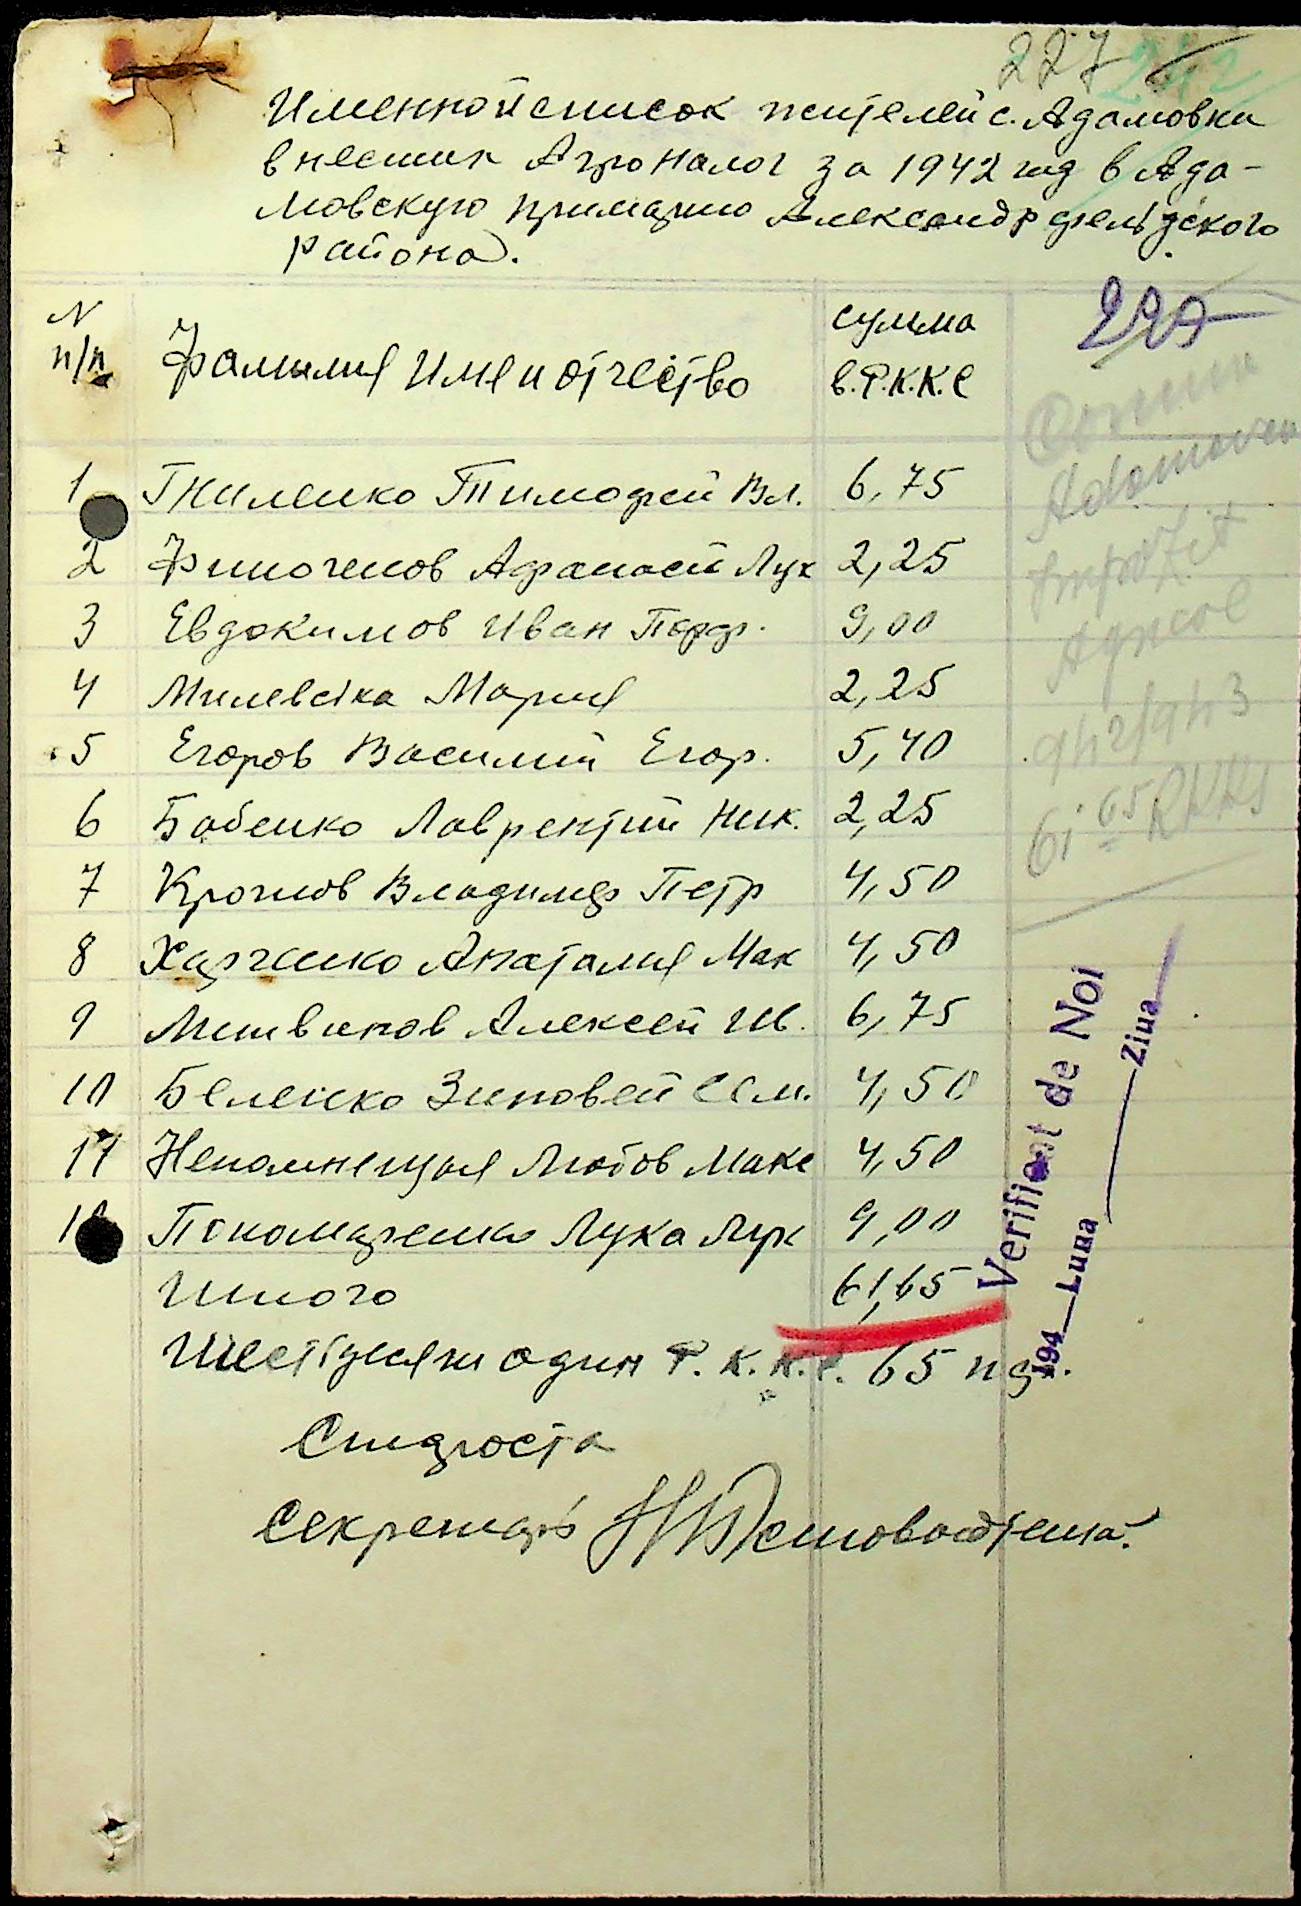 227
Именной список жителей с. Адамовки
внесших Агроналог за 1942 год в Ада-
мовскую примарию Александрфельдского
района.
N п/п Фамилия Имя и отчество сумма в.Р.К.К.С
1 Гниленко Тимофей Вл. 6,75
2 Афанасей Лук 2,25
3 Евдокимов Иван Порф. 9,00
4 Милевсіка Мария 2,25
5 Егоров Василий Егор. 5,40
6 Бабенко Лаврентий Ник. 2,25
7 Владимир Петр 4,50
8 Харченко Анаталия Мак 4,50
9 Литвинов Алексей 6,75
10 Беленко Зиновей Сем. 4,50
11 Непомнещая Любов Макс 4,50
Пономаренко Лука Лук 9,00
Итого 61,65
Шестдесят один Р. К. К. С. 65 пф.
Староста
Секретарь
Comuna
Adamovca
Impozit
Agricol
942/943
61 65 RKKS
Verificat de Noi
194 Luna Ziua